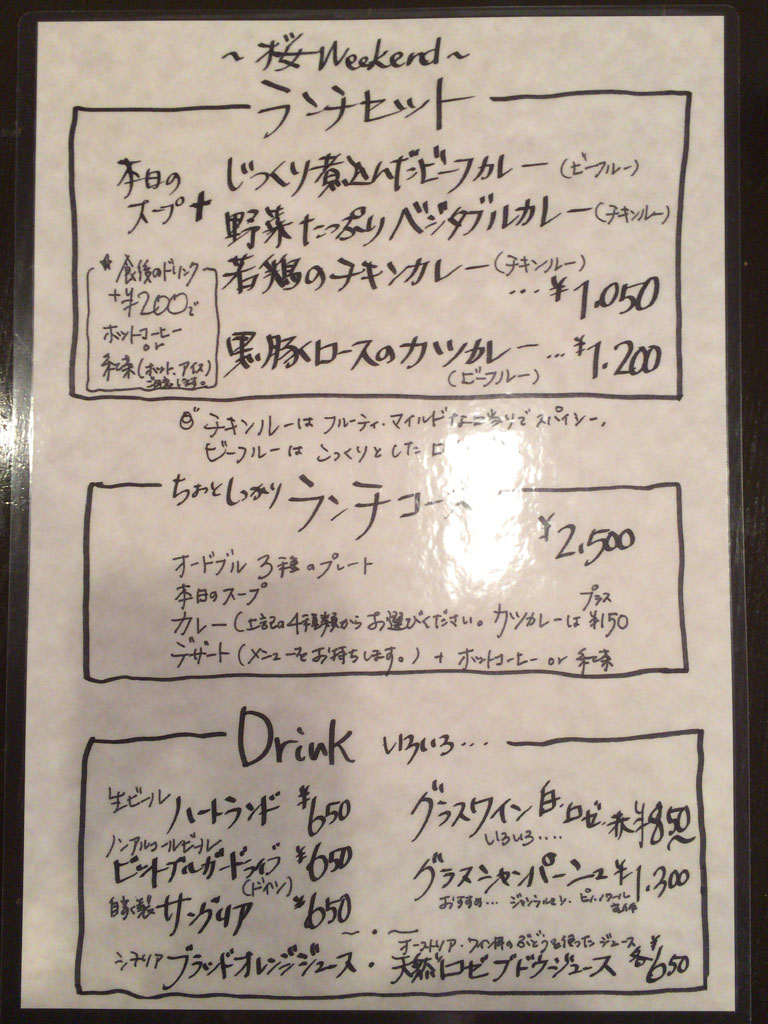 ～桜Weekend～
ランチセット
本日の
スープ+
じっくり煮込んだビーフカレー(ビーフルー)
野菜たっぷりベジタブルカレー(チキンルー)
若鶏のチキンカレー(チキンルー)
…¥1.050
黒豚ロースのカツカレー…¥1.200
(ビーフルー)
★食後のドリンク
+¥200で
ホットコーヒー
or
紅茶(ホット、アイス)
チキンルーは フルーティ・マイルドな口当りでスパイシー。
ビーフルーは こっくりとした
ちょっとしっかり ランチコース
¥2.500
オードブル 3種のプレート
本日のスープ
カレー(上記の4種類からお選びください。カツカレーはプラス¥150
デザート(メニューをお持ちします。) + ホットコーヒー or 紅茶
Drink いろいろ…
生ビール ハートランド ¥650
ノンアルコールビール
ビットブルガードライブ ¥650
(ドイツ)
自家製 サングリア ¥650
グラスワイン 白・ロゼ・赤 ¥850～
いろいろ….
グラスシャンパーニュ ¥1.300
おすすめ…
～・～
シチリア ブラッドオレンジジュース・
オーストリア・ワイン用のぶどうを使ったジュース
天然ロゼブドウジュース 各¥650